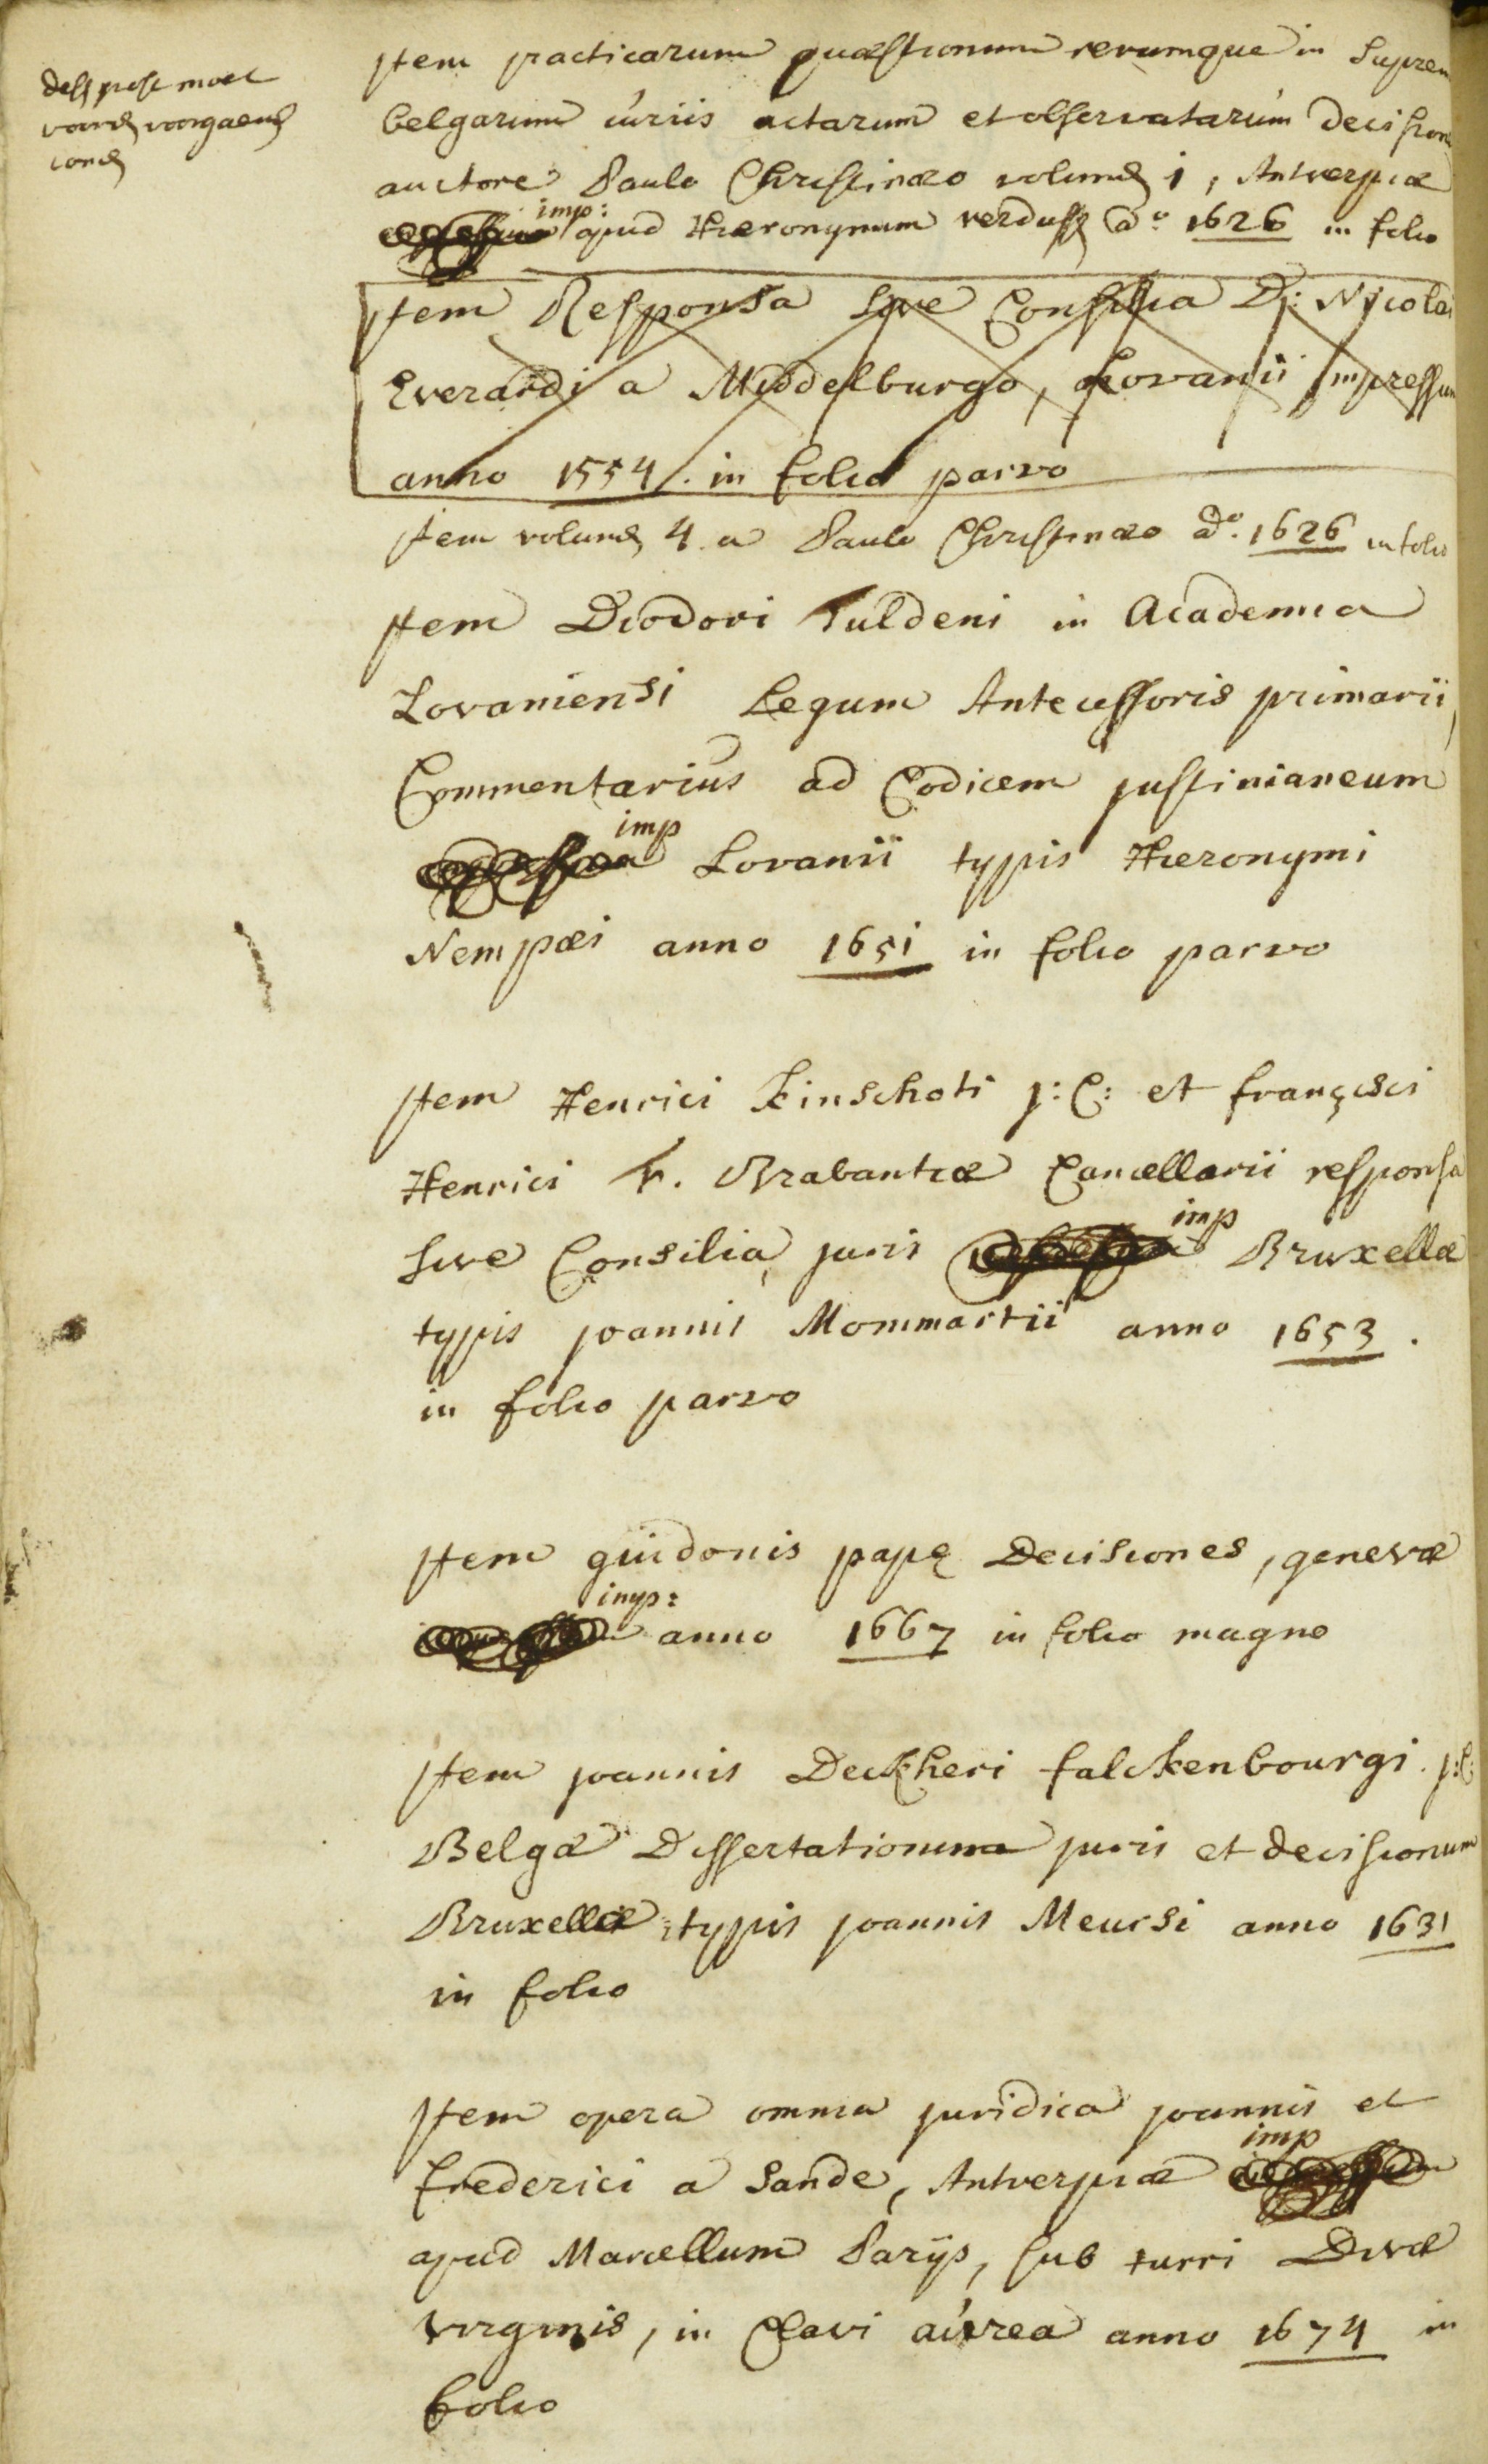 dese post moet
voor de voorgaende
comen
Item practicarum quæstionum rerumque in Suprem
belgarum curiis actarum et observatarum Decision
auctore Paulo Christinæo volumen 1, Antverpiæ
imp:
apud Hieronymum verduss a° 1626 in folio
Item Responsa Sive Consilia D: Nicolai
Everardi a Middelburgo, Lovanii impressum
anno 1554. in folio parvo
Item volumen 4. a Paulo Christinæo a°. 1626 in folio
Item Diodori Tuldeni in Academia
Lovaniensi Legum Antecessoris primarii,
Commentarius ad Codicem justinianeum
imp
Lovanii typis Hieronymi
Nempæi anno 1651 in folio parvo
Item Henrici Kinschoti j: C: et francisci
Henrici F. Brabantiæ Cancellarii responsa
Sive Consilia juris imp Bruxellæ
typis joannis Mommartii anno 1653.
in folio parvo
Item guidonis papę Decisiones, genevæ
imp:
anno 1667 in folio magno
Item joannis Deckheri falckenbourgi. j:C:
Belgæ Dissertationum juris et decisionum
Bruxellæ typis joannis Meursi anno 1631
in folio
Item opera omnia juridica joannis et
frederici a Sande, Antverpiæ imp
apud Marcellum Parijs, sub turri Divæ
virginis, in Clavi aúrea anno 1674 in
folio